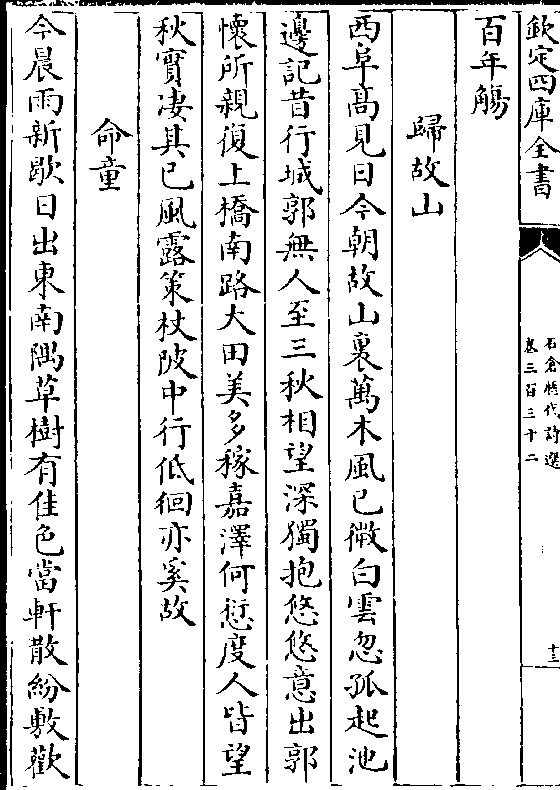 欽定四庫全書
石倉歷代詩選
卷三百三十二
十三
百年觴
歸故山
西阜高見日今朝故山裏萬木風已微白雲忽孤起池
邊記昔行城郭無人至三秋相望深獨抱悠悠意出郭
懷所親復上橋南路大田美多稼嘉澤何愆度人皆望
秋實凄其已風露策杖陂中行低徊亦奚故
命童
今晨雨新歇日出東南隅草樹有佳色當軒散紛敷歡